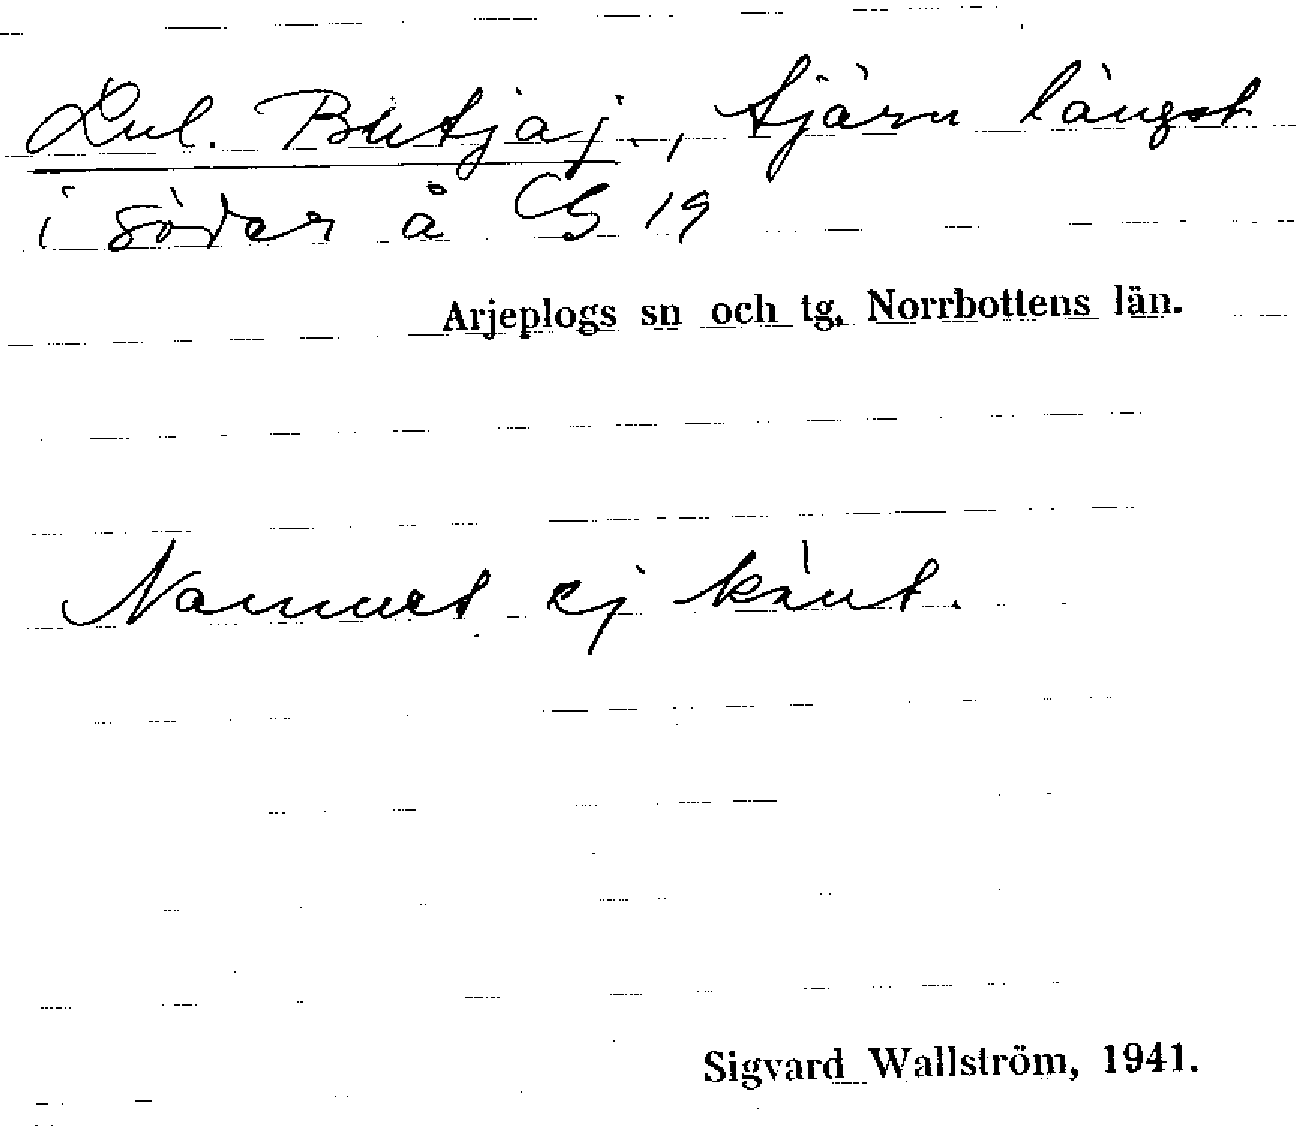 Lul. Butjaj., tjärn längst
i söder å CS 19
Arjeplogs sn och tg, Norrbottens län.
Namnet ej känt.
Sigvard Wallström, 1941.